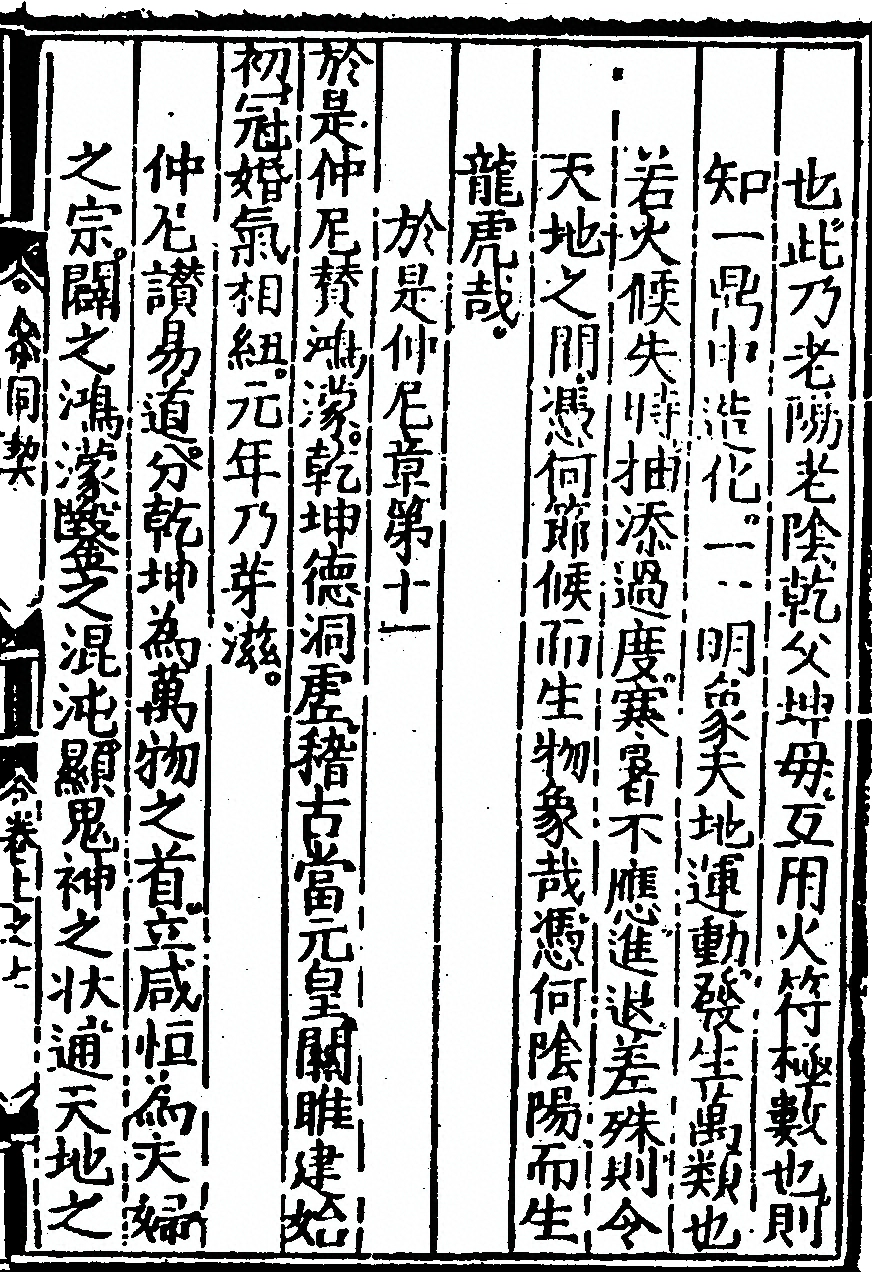 也此乃老陽老陰乾父坤母互用火符極數也則
知一鼎中造化一一明象天地運動發生萬類也
若火候失時抽添過度寒暑不應進退差殊則令
天地之間憑何節候而生物象哉憑何陰陽而生
龍虎哉
於是仲尼章第十一
於是仲尼贊鴻濛乾坤德洞虛稽古當元皇關雎建始
初冠婚氣相紐元年乃芽滋
仲尼讃易道分乾坤為萬物之首立咸恒為夫婦
之宗闢之鴻濛鑿之混沌顯鬼神之狀通天地之
參同契
卷上之上